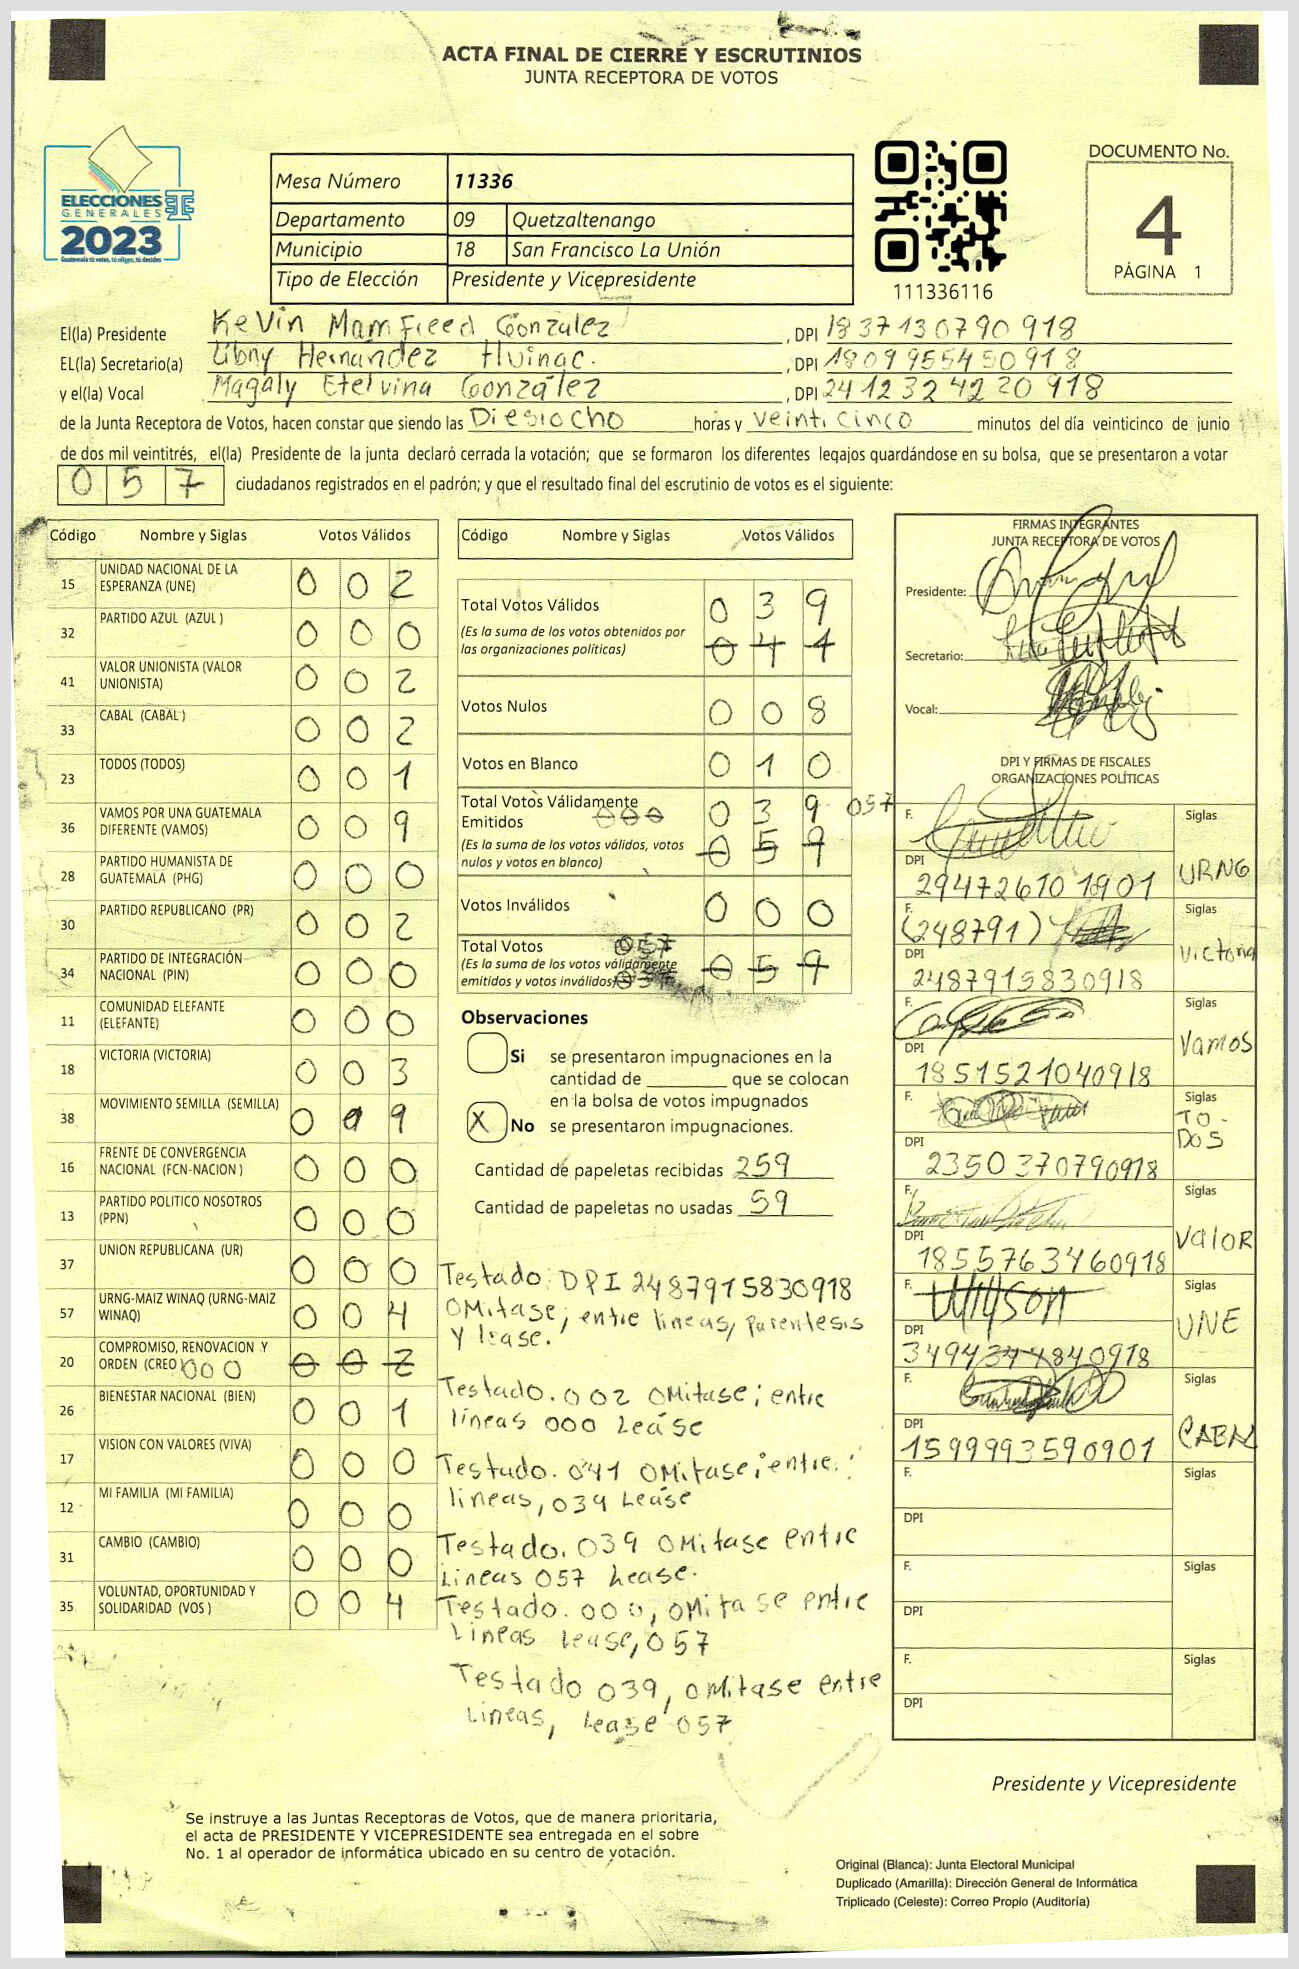 ACTA FINAL DE CIERRE Y ESCRUTINIOS
JUNTA RECEPTORA DE VOTOS
ELECCIONES
GENERALES
2023
Guatemala tú votas, tú eliges, tú decides
Mesa Número 11336
Departamento 09 Quetzaltenango
Municipio 18 San Francisco La Unión
Tipo de Elección Presidente y Vicepresidente
111336116
DOCUMENTO No.
4
PÁGINA 1
El(la) Presidente Kevin Mamfreed González , DPI 1837130790918
EL(la) Secretario(a) Libny Hernández Huinac. , DPI 1809955450918
y el(la) Vocal Magaly Etelvina González , DPI 2412324220918
de la Junta Receptora de Votos, hacen constar que siendo las Diesiocho horas y veinticinco minutos del día veinticinco de junio
de dos mil veintitrés, el(la) Presidente de la junta declaró cerrada la votación; que se formaron los diferentes legajos guardándose en su bolsa, que se presentaron a votar
0 5 7 ciudadanos registrados en el padrón; y que el resultado final del escrutinio de votos es el siguiente:
Código Nombre y Siglas Votos Válidos
15 UNIDAD NACIONAL DE LA ESPERANZA (UNE) 0 0 2
32 PARTIDO AZUL (AZUL ) 0 0 0
41 VALOR UNIONISTA (VALOR UNIONISTA) 0 0 2
33 CABAL (CABAL ) 0 0 2
23 TODOS (TODOS) 0 0 1
36 VAMOS POR UNA GUATEMALA DIFERENTE (VAMOS) 0 0 9
28 PARTIDO HUMANISTA DE GUATEMALA (PHG) 0 0 0
30 PARTIDO REPUBLICANO (PR) 0 0 2
34 PARTIDO DE INTEGRACIÓN NACIONAL (PIN) 0 0 0
11 COMUNIDAD ELEFANTE (ELEFANTE) 0 0 0
18 VICTORIA (VICTORIA) 0 0 3
38 MOVIMIENTO SEMILLA (SEMILLA) 0 9
16 FRENTE DE CONVERGENCIA NACIONAL (FCN-NACION ) 0 0 0
13 PARTIDO POLITICO NOSOTROS (PPN) 0 0 0
37 UNION REPUBLICANA (UR) 0 0 0
57 URNG-MAIZ WINAQ (URNG-MAIZ WINAQ) 0 0 4
20 COMPROMISO, RENOVACION Y ORDEN (CREO 000 0 0 2
26 BIENESTAR NACIONAL (BIEN) 0 0 1
17 VISION CON VALORES (VIVA) 0 0 0
12 MI FAMILIA (MI FAMILIA) 0 0 0
31 CAMBIO (CAMBIO) 0 0 0
35 VOLUNTAD, OPORTUNIDAD Y SOLIDARIDAD (VOS ) 0 0 4
Código Nombre y Siglas Votos Válidos
Total Votos Válidos 0 3 9
(Es la suma de los votos obtenidos por las organizaciones políticas) 0 4 1
Votos Nulos 0 0 8
Votos en Blanco 0 1 0
Total Votos Válidamente Emitidos 000 0 3 9 057
(Es la suma de los votos válidos, votos nulos y votos en blanco) 0 5 9
Votos Inválidos 0 0 0
Total Votos 057
(Es la suma de los votos válidamente emitidos y votos inválidos) 0 5 9
Observaciones
Si se presentaron impugnaciones en la
cantidad de ________ que se colocan
en la bolsa de votos impugnados
X No se presentaron impugnaciones.
Cantidad de papeletas recibidas 259
Cantidad de papeletas no usadas 59
Testado: DPI 2487915830918
OMitase; entre lineas, parentesis
y lease.
Testado. 002 OMitase; entre
líneas 000 Lease
Testado. 041 OMitase; entre
lineas, 039 Lease
Testado. 039 OMitase entre
Lineas 057 Lease.
Testado. 000, OMitase entre
Lineas lease, 057
Testado 039, OMitase entre
Lineas, Lease 057
FIRMAS INTEGRANTES
JUNTA RECEPTORA DE VOTOS
Presidente:
Secretario:
Vocal:
DPI Y FIRMAS DE FISCALES
ORGANIZACIONES POLÍTICAS
F. Siglas
DPI 2947261011901 URNG
F. (248791) Siglas
DPI 2487915830918 Victoria
F. Siglas
DPI 1851521040918 Vamos
F. Siglas
DPI 2350370790918 TO-
DOS
F. Siglas
DPI 1855763460918 Valor
F. Willson Siglas
DPI 3494344840918 UNE
F. Siglas
DPI 1599993590901 CABAL
F. Siglas
DPI
F. Siglas
DPI
F. Siglas
DPI
Presidente y Vicepresidente
Se instruye a las Juntas Receptoras de Votos, que de manera prioritaria,
el acta de PRESIDENTE Y VICEPRESIDENTE sea entregada en el sobre
No. 1 al operador de informática ubicado en su centro de votación.
Original (Blanca): Junta Electoral Municipal
Duplicado (Amarilla): Dirección General de Informática
Triplicado (Celeste): Correo Propio (Auditoría)